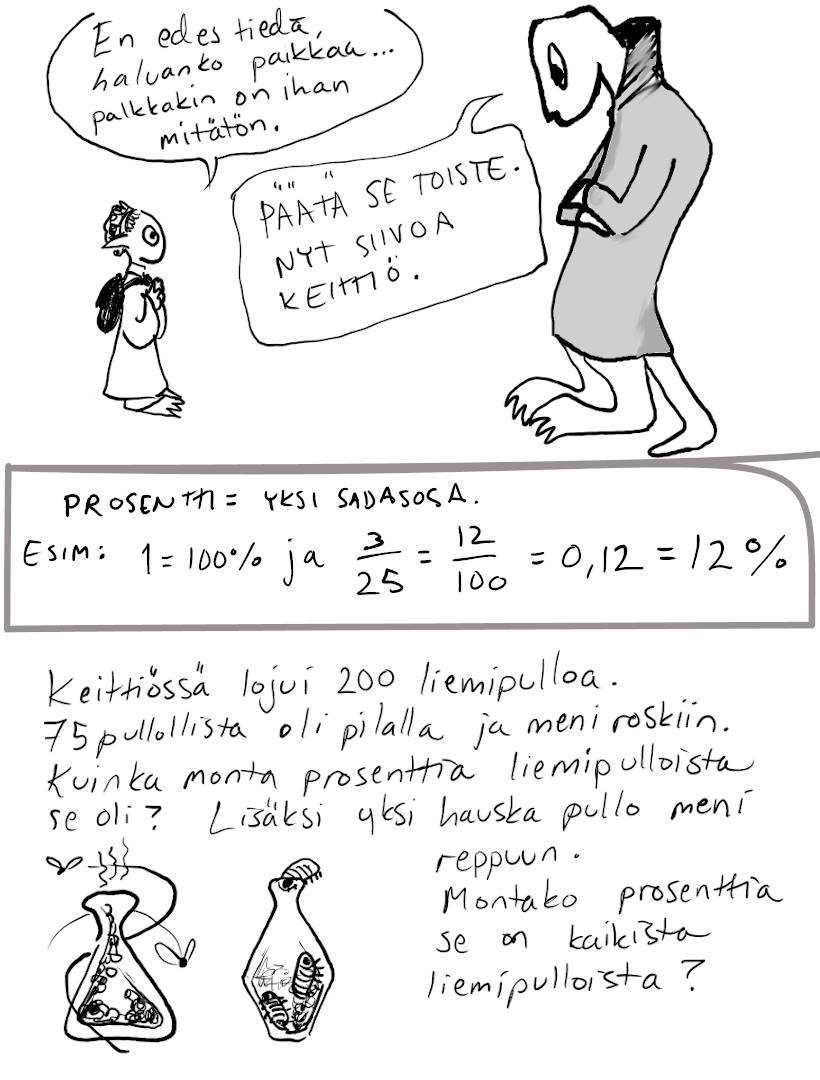 En edes tiedä,
haluanko paikkaa...
palkkakin on ihan
mitätön.
PÄÄTÄ SE TOISTE.
NYT SIIVOA
KEITTIÖ.
PROSENTTI = YKSI SADASOSA.
ESIM: 1 = 100% ja 3/25 = 12/100 = 0,12 = 12%
Keittiössä lojui 200 liemipulloa.
75 pullollista oli pilalla ja meni roskiin.
Kuinka monta prosenttia liemipulloista
se oli? Lisäksi yksi hauska pullo meni
reppuun.
Montako prosenttia
se on kaikista
liemipulloista?